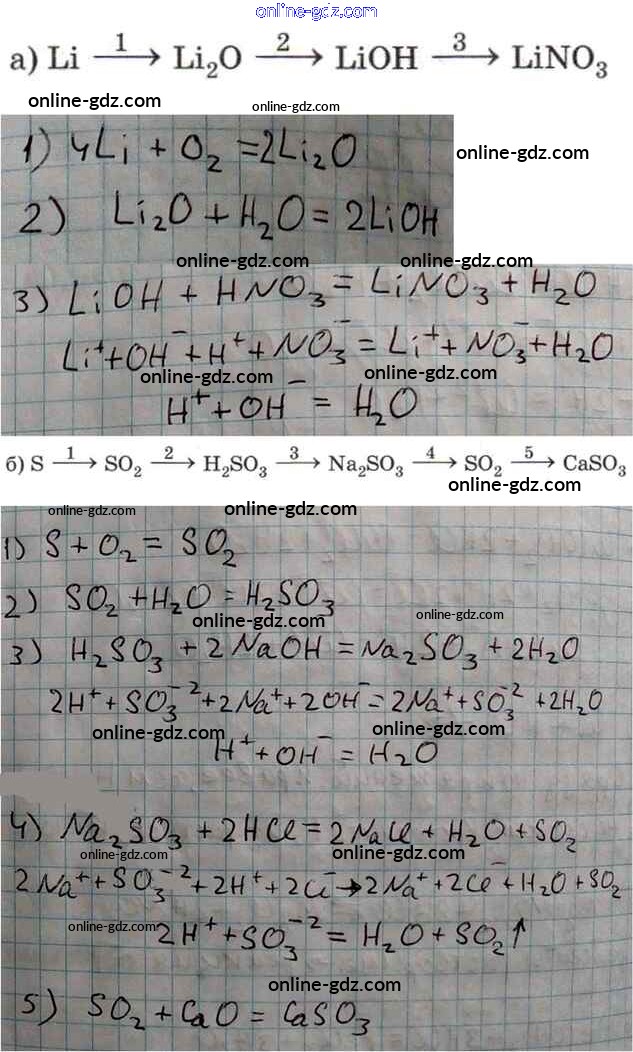 online-gdz.com
а) Li —1→ Li₂O —2→ LiOH —3→ LiNO₃
online-gdz.com online-gdz.com
1) 4Li + O₂ =2Li₂O
online-gdz.com
2) Li₂O + H₂O = 2LiOH
online-gdz.com online-gdz.com
3) LiOH + HNO₃ = LiNO₃ + H₂O
Li⁺+OH⁻+H⁺+NO₃⁻ = Li⁺+NO₃⁻+H₂O
online-gdz.com online-gdz.com
H⁺+OH⁻ = H₂O
б) S —1→ SO₂ —2→ H₂SO₃ —3→ Na₂SO₃ —4→ SO₂ —5→ CaSO₃
online-gdz.com
online-gdz.com online-gdz.com
1) S + O₂ = SO₂
2) SO₂ +H₂O = H₂SO₃
online-gdz.com online-gdz.com
3) H₂SO₃ + 2NaOH = Na₂SO₃ + 2H₂O
2H⁺+SO₃⁻²+2Na⁺+2OH⁻=2Na⁺+SO₃⁻² +2H₂O
online-gdz.com online-gdz.com
H⁺+OH⁻ = H₂O
4) Na₂SO₃ + 2HCl = 2NaCl + H₂O + SO₂
online-gdz.com online-gdz.com
2Na⁺+SO₃⁻²+2H⁺+2Cl⁻→2Na⁺+2Cl⁻+H₂O+SO₂
online-gdz.com
2H⁺+SO₃⁻² = H₂O + SO₂↑
online-gdz.com
5) SO₂ + CaO = CaSO₃